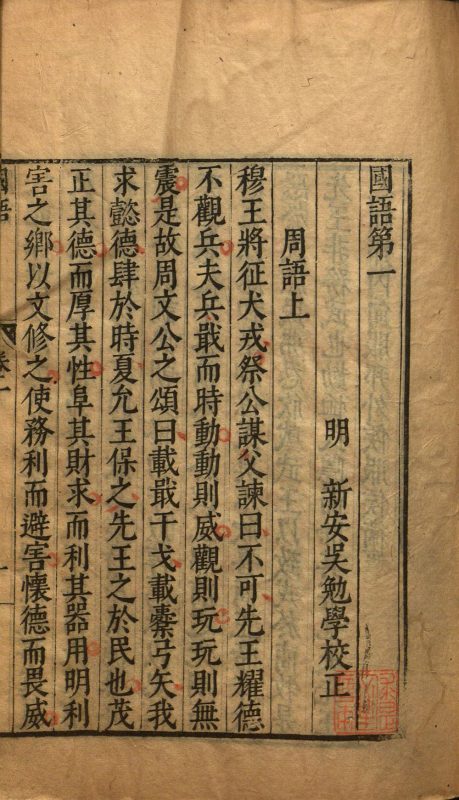 國語第一
明　新安吳勉學校正
周語上
穆王將征犬戎祭公謀父諫曰不可先王耀德
不觀兵夫兵戢而時動動則威觀則玩玩則無
震是故周文公之頌曰載戢干戈載櫜弓矢我
求懿德肆於時夏允王保之先王之於民也茂
正其德而厚其性阜其財求而利其器用明利
害之鄉以文修之使務利而避害懷德而畏威
國語
卷一
一